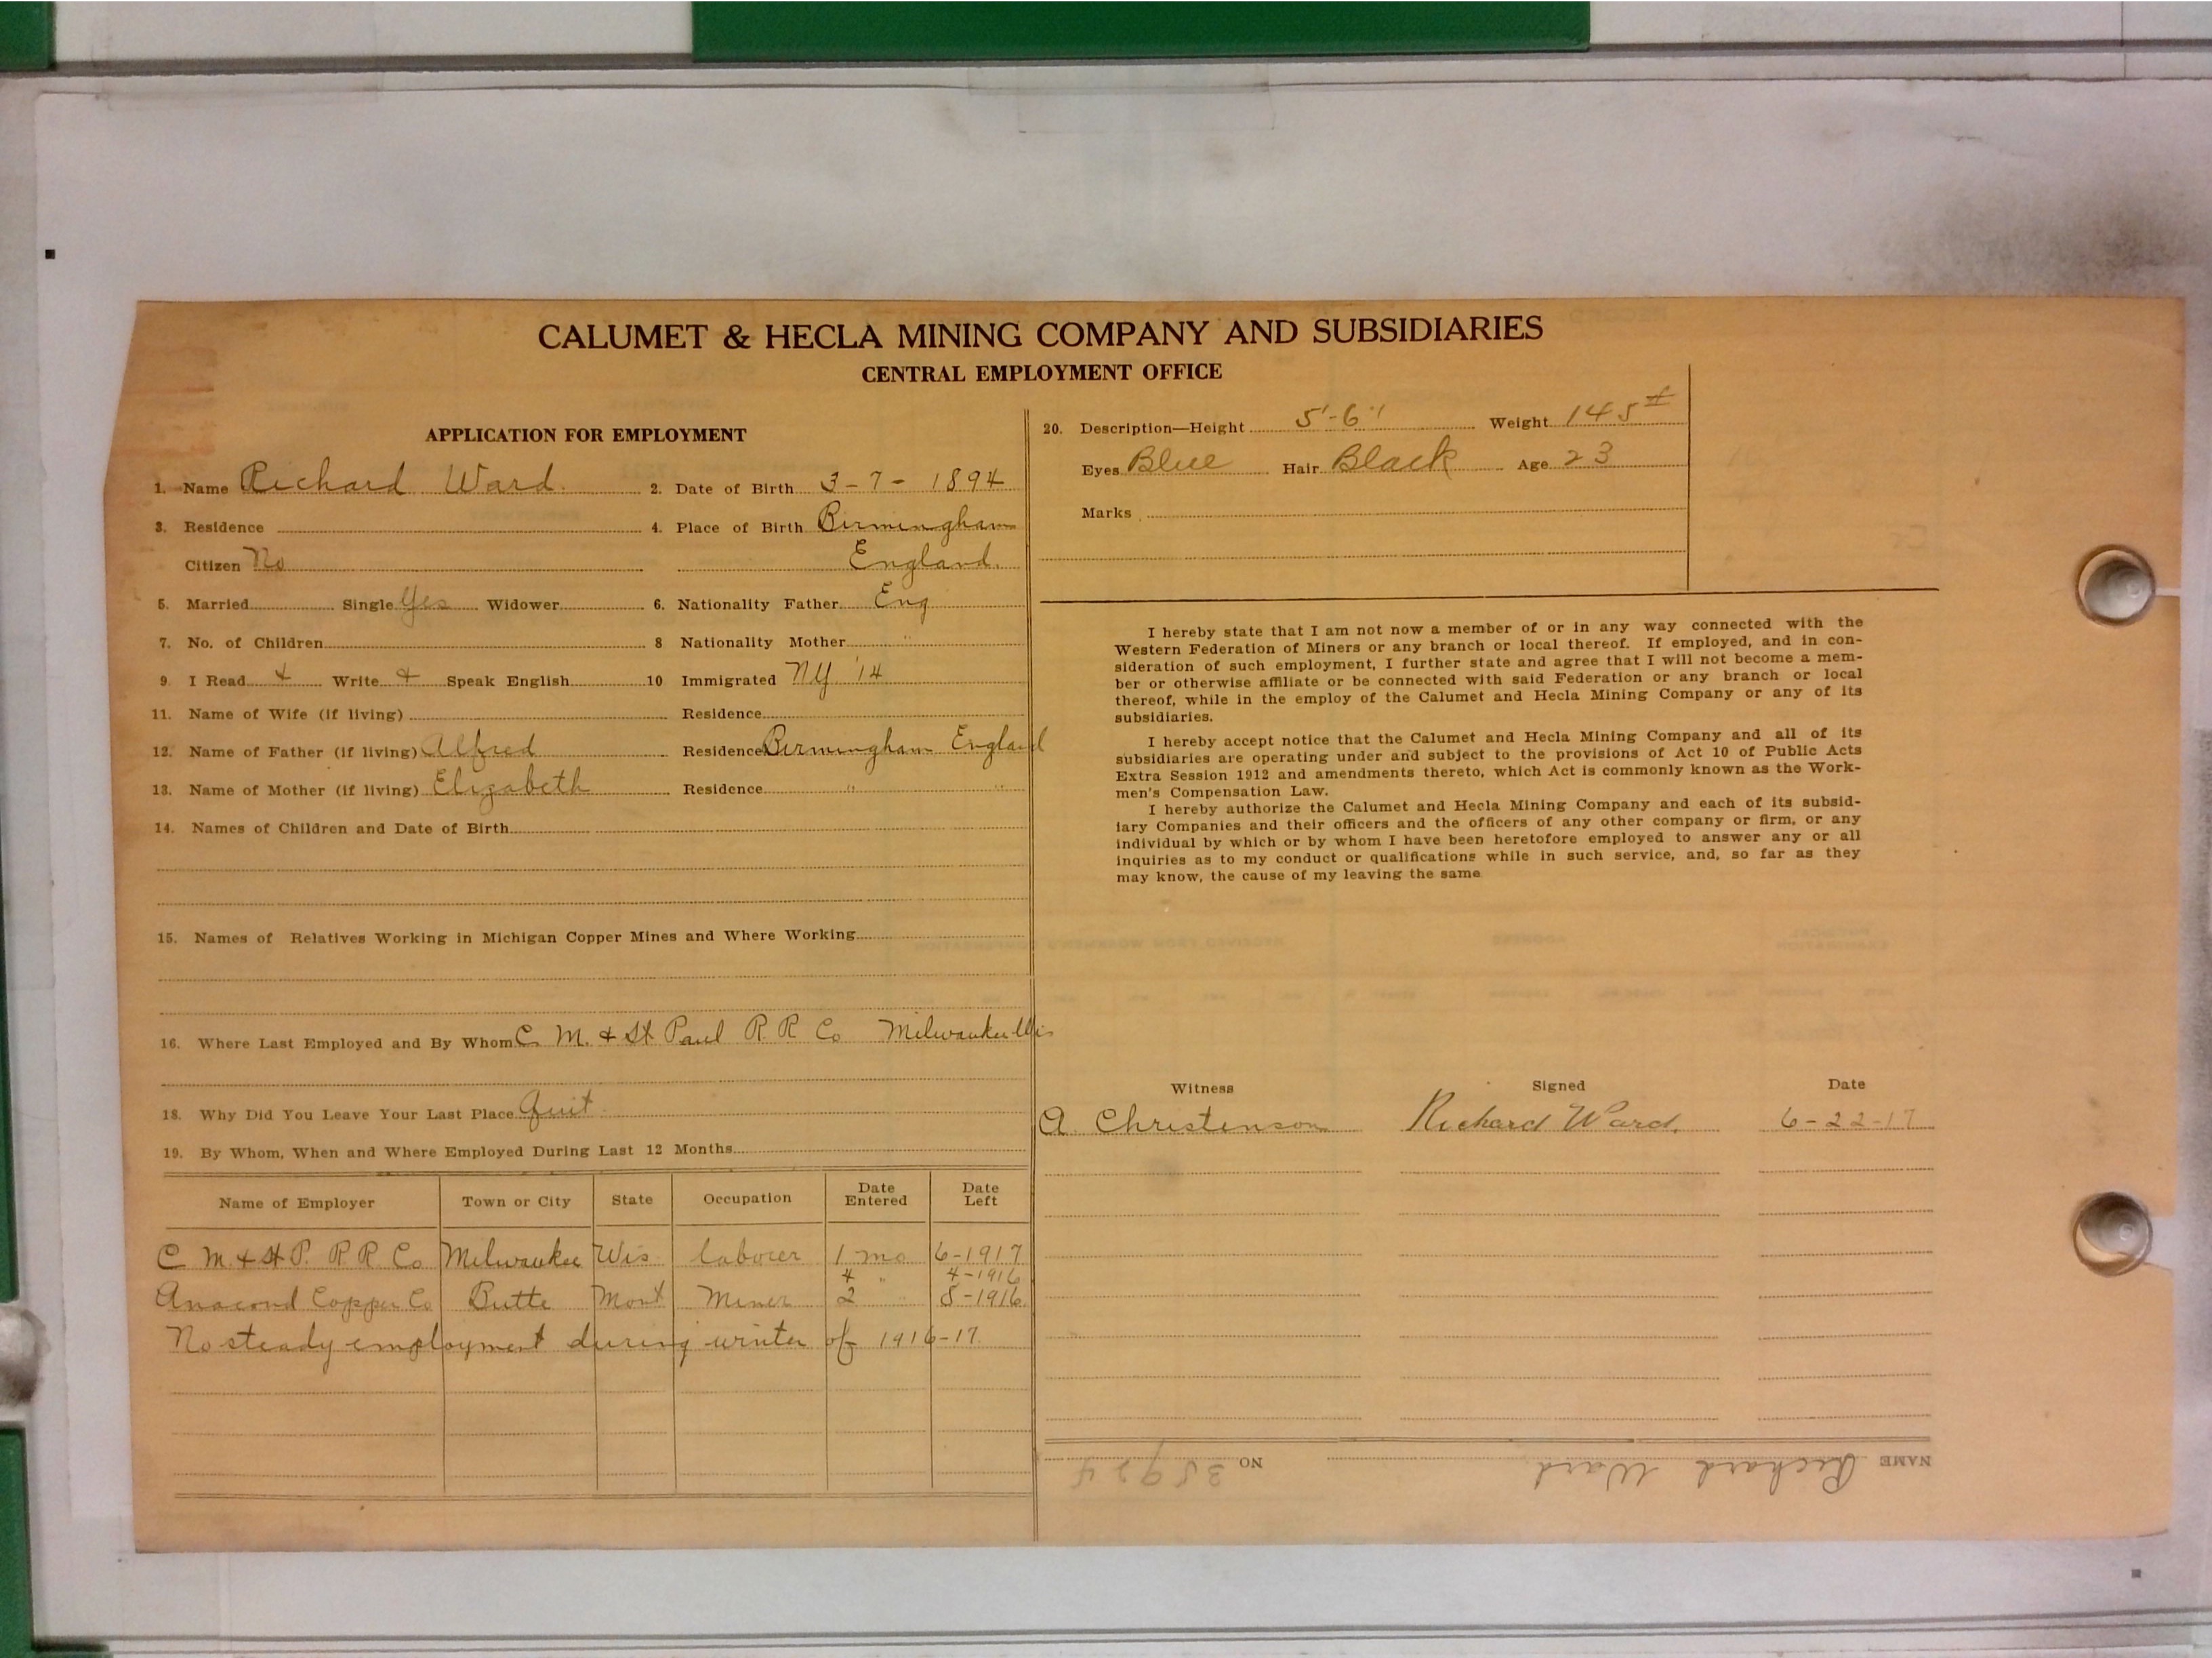 CALUMET & HECLA MINING COMPANY AND SUBSIDIARIES
CENTRAL EMPLOYMENT OFFICE
APPLICATION FOR EMPLOYMENT
1. Name Richard Ward. 2. Date of Birth 3-7-1894
3. Residence 4. Place of Birth Birmingham
Citizen No England.
5. Married Single Yes Widower 6. Nationality Father Eng
7. No. of Children 8 Nationality Mother "
9. I Read + Write + Speak English 10 Immigrated NY '14
11. Name of Wife (if living) Residence
12. Name of Father (if living) Alfred Residence Birmingham England
13. Name of Mother (if living) Elizabeth Residence " "
14. Names of Children and Date of Birth
15. Names of Relatives Working in Michigan Copper Mines and Where Working
16. Where Last Employed and By Whom C. M. & St. Paul R R Co Milwaukee Wis
18. Why Did You Leave Your Last Place Quit
19. By Whom, When and Where Employed During Last 12 Months
Name of Employer Town or City State Occupation Date Entered Date Left
C M. & St P. R R. Co Milwaukee Wis laborer 1 mo 6-1917
4 " 4-1916
Anacond Copper Co Butte Mont Miner 2 " 8-1916
No steady employment during winter of 1916-17.
20. Description—Height 5'-6" Weight 145#
Eyes Blue Hair Black Age 23
Marks
I hereby state that I am not now a member of or in any way connected with the
Western Federation of Miners or any branch or local thereof. If employed, and in con-
sideration of such employment, I further state and agree that I will not become a mem-
ber or otherwise affiliate or be connected with said Federation or any branch or local
thereof, while in the employ of the Calumet and Hecla Mining Company or any of its
subsidiaries.
I hereby accept notice that the Calumet and Hecla Mining Company and all of its
subsidiaries are operating under and subject to the provisions of Act 10 of Public Acts
Extra Session 1912 and amendments thereto, which Act is commonly known as the Work-
men's Compensation Law.
I hereby authorize the Calumet and Hecla Mining Company and each of its subsid-
iary Companies and their officers and the officers of any other company or firm, or any
individual by which or by whom I have been heretofore employed to answer any or all
inquiries as to my conduct or qualifications while in such service, and, so far as they
may know, the cause of my leaving the same
Witness Signed Date
A. Christenson Richard Ward. 6-22-17
NAME Richard Ward NO 35924